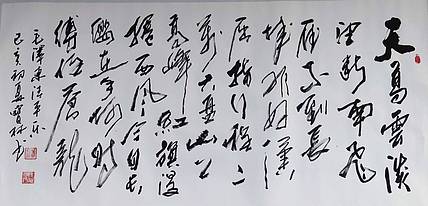 天高雲淡
望斷南飛
雁不到長
城非好漢
屈指行程二
萬六盤山上
高峰紅旗漫
捲西風今日長
纓在手何時
縛住蒼龍
毛澤東清平樂
己亥初夏寶林书